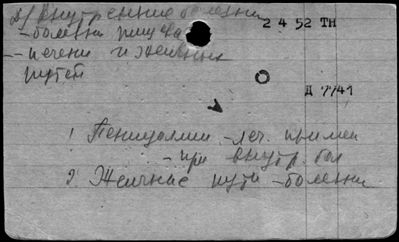 2) внутренние болезни
2 4 52 ТН
- болезни
-- печени и желчных
путей
Д 7741
1 Пенициллин - леч. примен
- при внутр. бол
2 Желчные пути - болезни